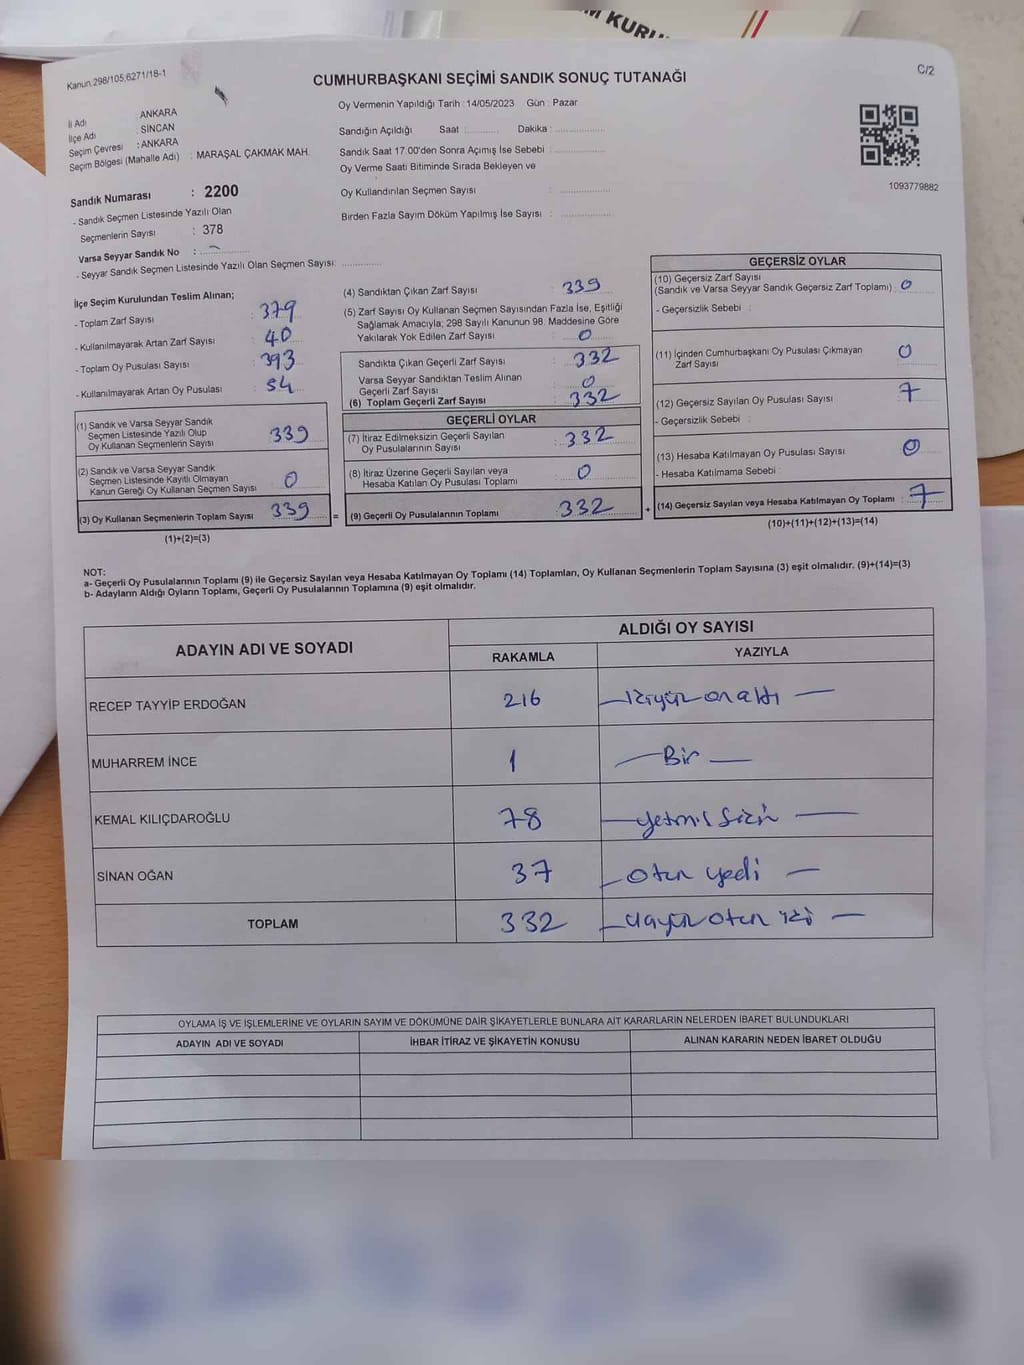 M KURU
Kanun.298/105;6271/18-1
C/2
CUMHURBAŞKANI SEÇİMİ SANDIK SONUÇ TUTANAĞI
Oy Vermenin Yapıldığı Tarih : 14/05/2023 Gün : Pazar
İl Adı : ANKARA
İlçe Adı : SİNCAN
Seçim Çevresi : ANKARA
Seçim Bölgesi (Mahalle Adı) : MARAŞAL ÇAKMAK MAH.
Sandık Numarası : 2200
- Sandık Seçmen Listesinde Yazılı Olan
Seçmenlerin Sayısı : 378
Varsa Seyyar Sandık No :
- Seyyar Sandık Seçmen Listesinde Yazılı Olan Seçmen Sayısı:
Sandığın Açıldığı Saat : Dakika :
Sandık Saat 17.00'den Sonra Açımış İse Sebebi :
Oy Verme Saati Bitiminde Sırada Bekleyen ve
Oy Kullandırılan Seçmen Sayısı :
Birden Fazla Sayım Döküm Yapılmış İse Sayısı :
1093779882
İlçe Seçim Kurulundan Teslim Alınan;
- Toplam Zarf Sayısı : 379
- Kullanılmayarak Artan Zarf Sayısı : 40
- Toplam Oy Pusulası Sayısı : 393
- Kullanılmayarak Artan Oy Pusulası : 54
(1) Sandık ve Varsa Seyyar Sandık
Seçmen Listesinde Yazılı Olup
Oy Kullanan Seçmenlerin Sayısı 339
(2) Sandık ve Varsa Seyyar Sandık
Seçmen Listesinde Kayıtlı Olmayan
Kanun Gereği Oy Kullanan Seçmen Sayısı 0
(3) Oy Kullanan Seçmenlerin Toplam Sayısı 339
(1)+(2)=(3)
(4) Sandıktan Çıkan Zarf Sayısı : 339
(5) Zarf Sayısı Oy Kullanan Seçmen Sayısından Fazla İse, Eşitliği
Sağlamak Amacıyla; 298 Sayılı Kanunun 98. Maddesine Göre
Yakılarak Yok Edilen Zarf Sayısı : 0
Sandıkta Çıkan Geçerli Zarf Sayısı : 332
Varsa Seyyar Sandıktan Teslim Alınan
Geçerli Zarf Sayısı : 0
(6) Toplam Geçerli Zarf Sayısı : 332
GEÇERLİ OYLAR
(7) İtiraz Edilmeksizin Geçerli Sayılan
Oy Pusulalarının Sayısı : 332
(8) İtiraz Üzerine Geçerli Sayılan veya
Hesaba Katılan Oy Pusulası Toplamı : 0
= (9) Geçerli Oy Pusulalarının Toplamı : 332
GEÇERSİZ OYLAR
(10) Geçersiz Zarf Sayısı
(Sandık ve Varsa Seyyar Sandık Geçersiz Zarf Toplamı) : 0
- Geçersizlik Sebebi :
(11) İçinden Cumhurbaşkanı Oy Pusulası Çıkmayan
Zarf Sayısı : 0
(12) Geçersiz Sayılan Oy Pusulası Sayısı : 7
- Geçersizlik Sebebi :
(13) Hesaba Katılmayan Oy Pusulası Sayısı : 0
- Hesaba Katılmama Sebebi :
+ (14) Geçersiz Sayılan veya Hesaba Katılmayan Oy Toplamı : 7
(10)+(11)+(12)+(13)=(14)
NOT:
a- Geçerli Oy Pusulalarının Toplamı (9) ile Geçersiz Sayılan veya Hesaba Katılmayan Oy Toplamı (14) Toplamları, Oy Kullanan Seçmenlerin Toplam Sayısına (3) eşit olmalıdır. (9)+(14)=(3)
b- Adayların Aldığı Oyların Toplamı, Geçerli Oy Pusulalarının Toplamına (9) eşit olmalıdır.
ADAYIN ADI VE SOYADI ALDIĞI OY SAYISI
RAKAMLA YAZIYLA
RECEP TAYYİP ERDOĞAN 216 ikiyüz on altı
MUHARREM İNCE 1 Bir
KEMAL KILIÇDAROĞLU 78 yetmiş sekiz
SİNAN OĞAN 37 otuz yedi
TOPLAM 332 üçyüz otuz iki
OYLAMA İŞ VE İŞLEMLERİNE VE OYLARIN SAYIM VE DÖKÜMÜNE DAİR ŞİKAYETLERLE BUNLARA AİT KARARLARIN NELERDEN İBARET BULUNDUKLARI
ADAYIN ADI VE SOYADI İHBAR İTİRAZ VE ŞİKAYETİN KONUSU ALINAN KARARIN NEDEN İBARET OLDUĞU